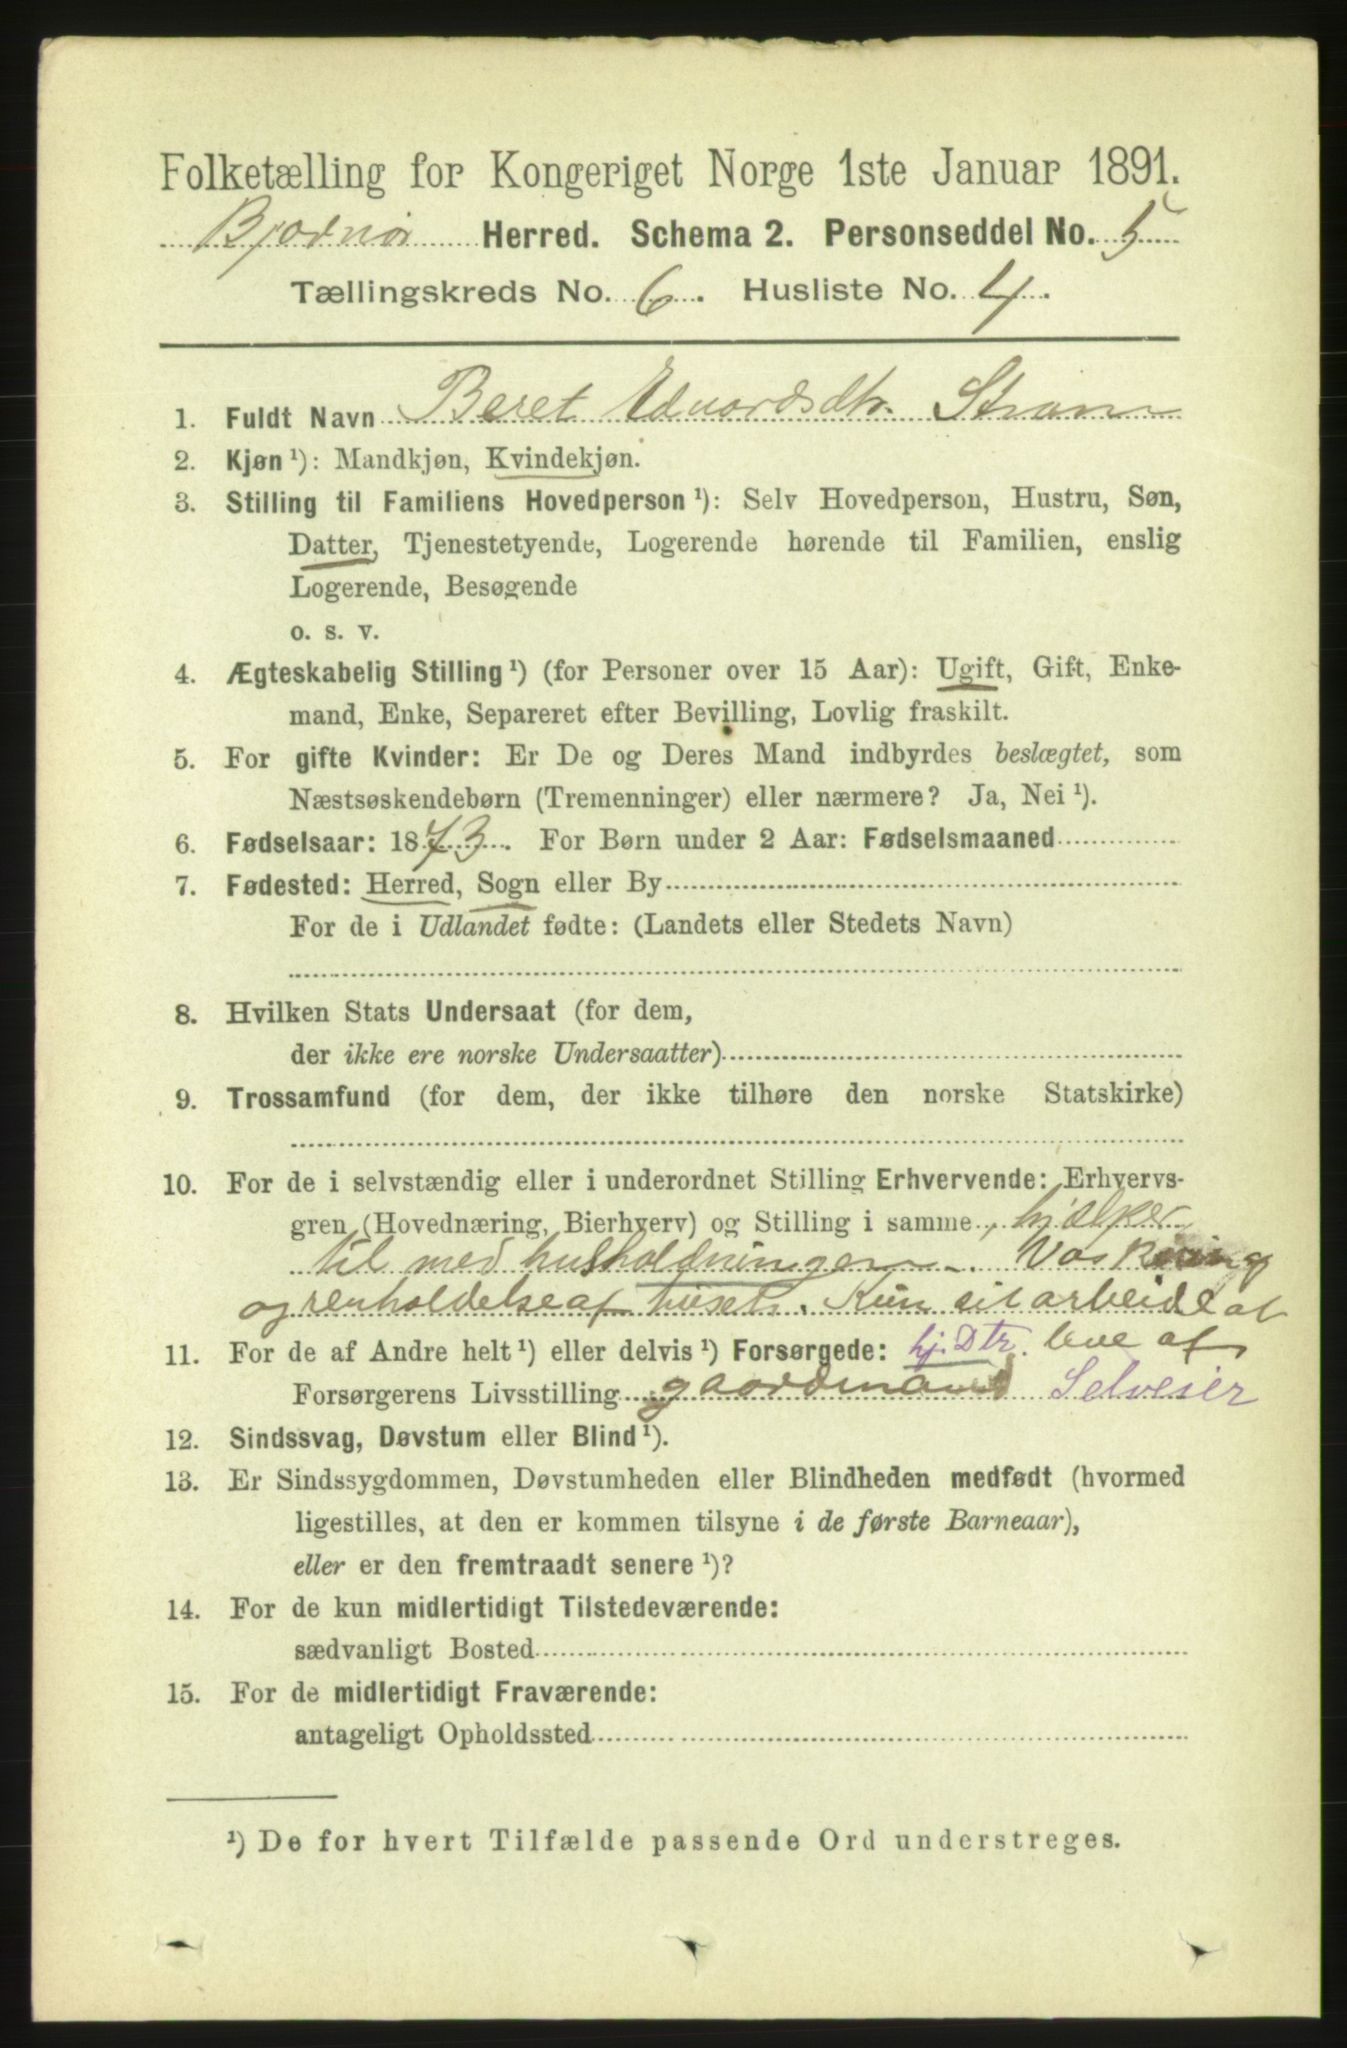 Folketælling for Kongeriget Norge 1ste Januar 1891.
Bjørnør Herred. Schema 2. Personseddel No. 5
Tællingskreds No. 6. Husliste No. 4.
1. Fuldt Navn Beret Edvardsdtr. Strøm
2. Kjøn ¹): Mandkjøn, Kvindekjøn.
3. Stilling til Familiens Hovedperson ¹): Selv Hovedperson, Hustru, Søn,
Datter, Tjenestetyende, Logerende hørende til Familien, enslig
Logerende, Besøgende
o. s. v.
4. Ægteskabelig Stilling ¹) (for Personer over 15 Aar): Ugift, Gift, Enke-
mand, Enke, Separeret efter Bevilling, Lovlig fraskilt.
5. For gifte Kvinder: Er De og Deres Mand indbyrdes beslægtet, som
Næstsøskendebørn (Tremenninger) eller nærmere? Ja, Nei ¹).
6. Fødselsaar: 1873. For Børn under 2 Aar: Fødselsmaaned
7. Fødested: Herred, Sogn eller By
For de i Udlandet fødte: (Landets eller Stedets Navn)
8. Hvilken Stats Undersaat (for dem,
der ikke ere norske Undersaatter)
9. Trossamfund (for dem, der ikke tilhøre den norske Statskirke)
10. For de i selvstændig eller i underordnet Stilling Erhvervende: Erhvervs-
gren (Hovednæring, Bierhverv) og Stilling i samme, hjælper
til med husholdningen. Vaskning
og renholdelse af huset. Kun sit arbeide at
11. For de af Andre helt ¹) eller delvis ¹) Forsørgede: hj. Dtr. leve af
Forsørgerens Livsstilling gaardmand Selveier
12. Sindssvag, Døvstum eller Blind ¹).
13. Er Sindssygdommen, Døvstumheden eller Blindheden medfødt (hvormed
ligestilles, at den er kommen tilsyne i de første Barneaar),
eller er den fremtraadt senere ¹)?
14. For de kun midlertidigt Tilstedeværende:
sædvanligt Bosted
15. For de midlertidigt Fraværende:
antageligt Opholdssted
¹) De for hvert Tilfælde passende Ord understreges.